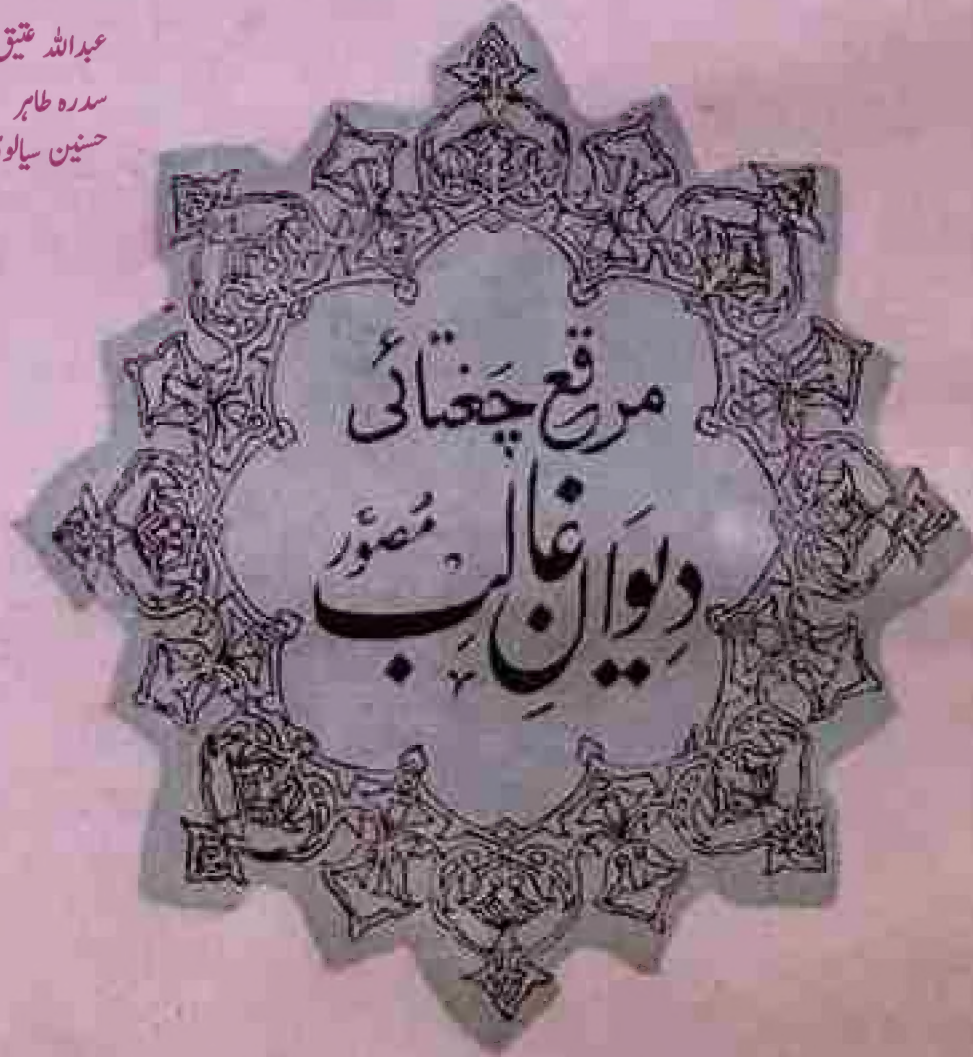 عبداللہ عتیق
سدرہ طاہر
حسنین سیالوی
مرقع چغتائی
دیوانِ غالب مصور